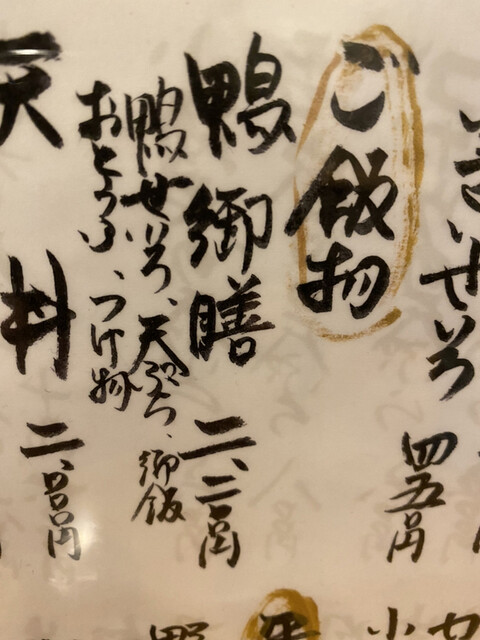 せいろ
四五〇円
ご飯物
鴨御膳 二、二〇〇円
鴨せいろ、天ぷら、御飯
おとうふ、つけ物
天 料 二、〇〇〇円